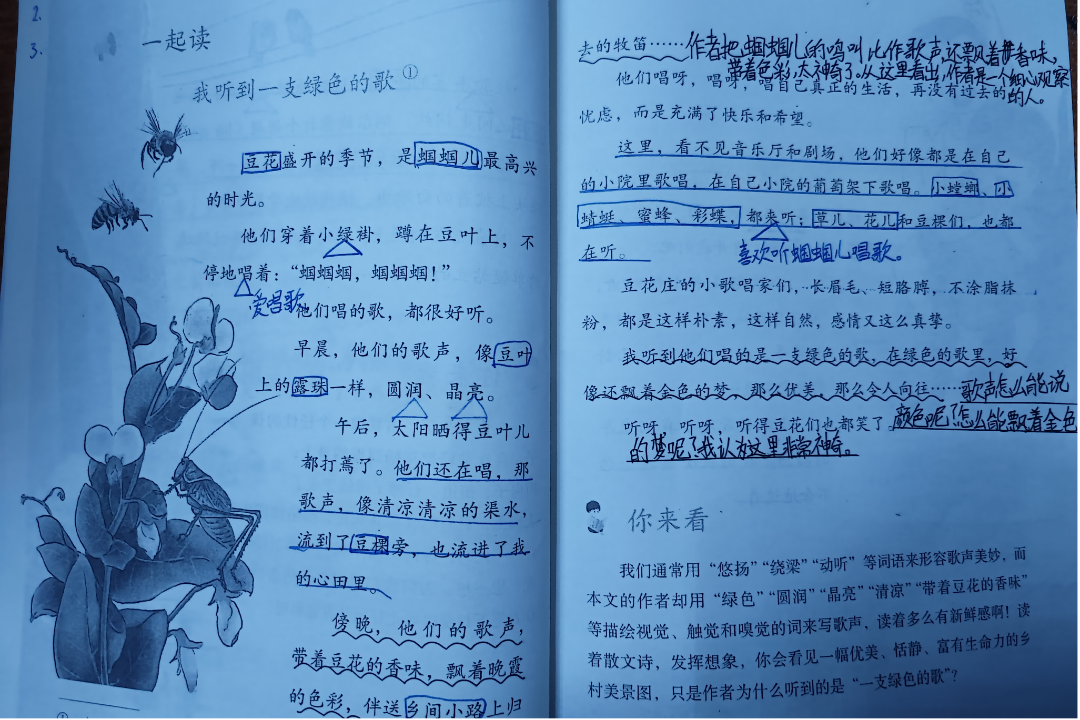 2.
3.
一起读
我听到一支绿色的歌①
豆花盛开的季节，是蝈蝈儿最高兴
的时光。
他们穿着小绿褂，蹲在豆叶上，不
停地唱着：“蝈蝈蝈，蝈蝈蝈！”
爱唱歌
他们唱的歌，都很好听。
早晨，他们的歌声，像豆叶
上的露珠一样，圆润、晶亮。
午后，太阳晒得豆叶儿
都打蔫了。他们还在唱，那
歌声，像清凉清凉的渠水，
流到了豆棵旁，也流进了我
的心田里。
傍晚，他们的歌声，
带着豆花的香味，飘着晚霞
的色彩，伴送乡间小路上归
去的牧笛……
作者把蝈蝈儿的鸣叫比作歌声还飘着香味，
带着色彩，太神奇了。从这里看出，作者是一个细心观察
的人。
他们唱呀，唱呀，唱自己真正的生活，再没有过去的
忧虑，而是充满了快乐和希望。
这里，看不见音乐厅和剧场，他们好像都是在自己
的小院里歌唱，在自己小院的葡萄架下歌唱。小螳螂、小
蜻蜓、蜜蜂、彩蝶，都来听；草儿、花儿和豆棵们，也都
在听。
喜欢听蝈蝈儿唱歌。
豆花庄的小歌唱家们，长眉毛、短胳膊，不涂脂抹
粉，都是这样朴素，这样自然，感情又这么真挚。
我听到他们唱的是一支绿色的歌，在绿色的歌里，好
像还飘着金色的梦，那么优美，那么令人向往……
歌声怎么能说
颜色呢？怎么能飘着金色
的梦呢？我认为这里非常神奇。
听呀，听呀，听得豆花们也都笑了
你来看
我们通常用“悠扬”“绕梁”“动听”等词语来形容歌声美妙，而
本文的作者却用“绿色”“圆润”“晶亮”“清凉”“带着豆花的香味”
等描绘视觉、触觉和嗅觉的词来写歌声，读着多么有新鲜感啊！读
着散文诗，发挥想象，你会看见一幅优美、恬静、富有生命力的乡
村美景图，只是作者为什么听到的是“一支绿色的歌”？